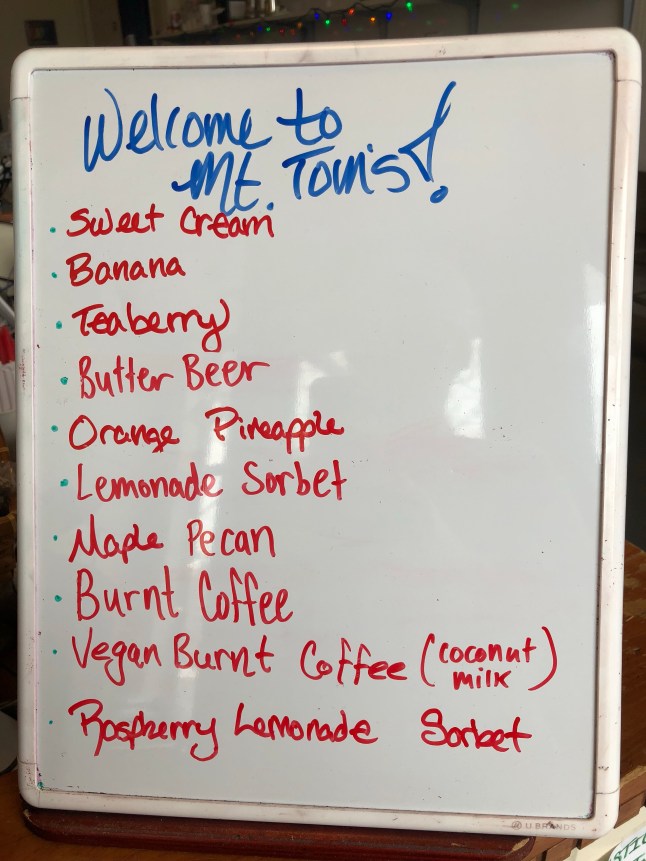 Welcome to
Mt. Tom's!
· Sweet Cream
· Banana
· Teaberry
· Butter Beer
· Orange Pineapple
· Lemonade Sorbet
· Maple Pecan
· Burnt Coffee
· Vegan Burnt Coffee (coconut milk)
· Raspberry Lemonade Sorbet
U BRANDS